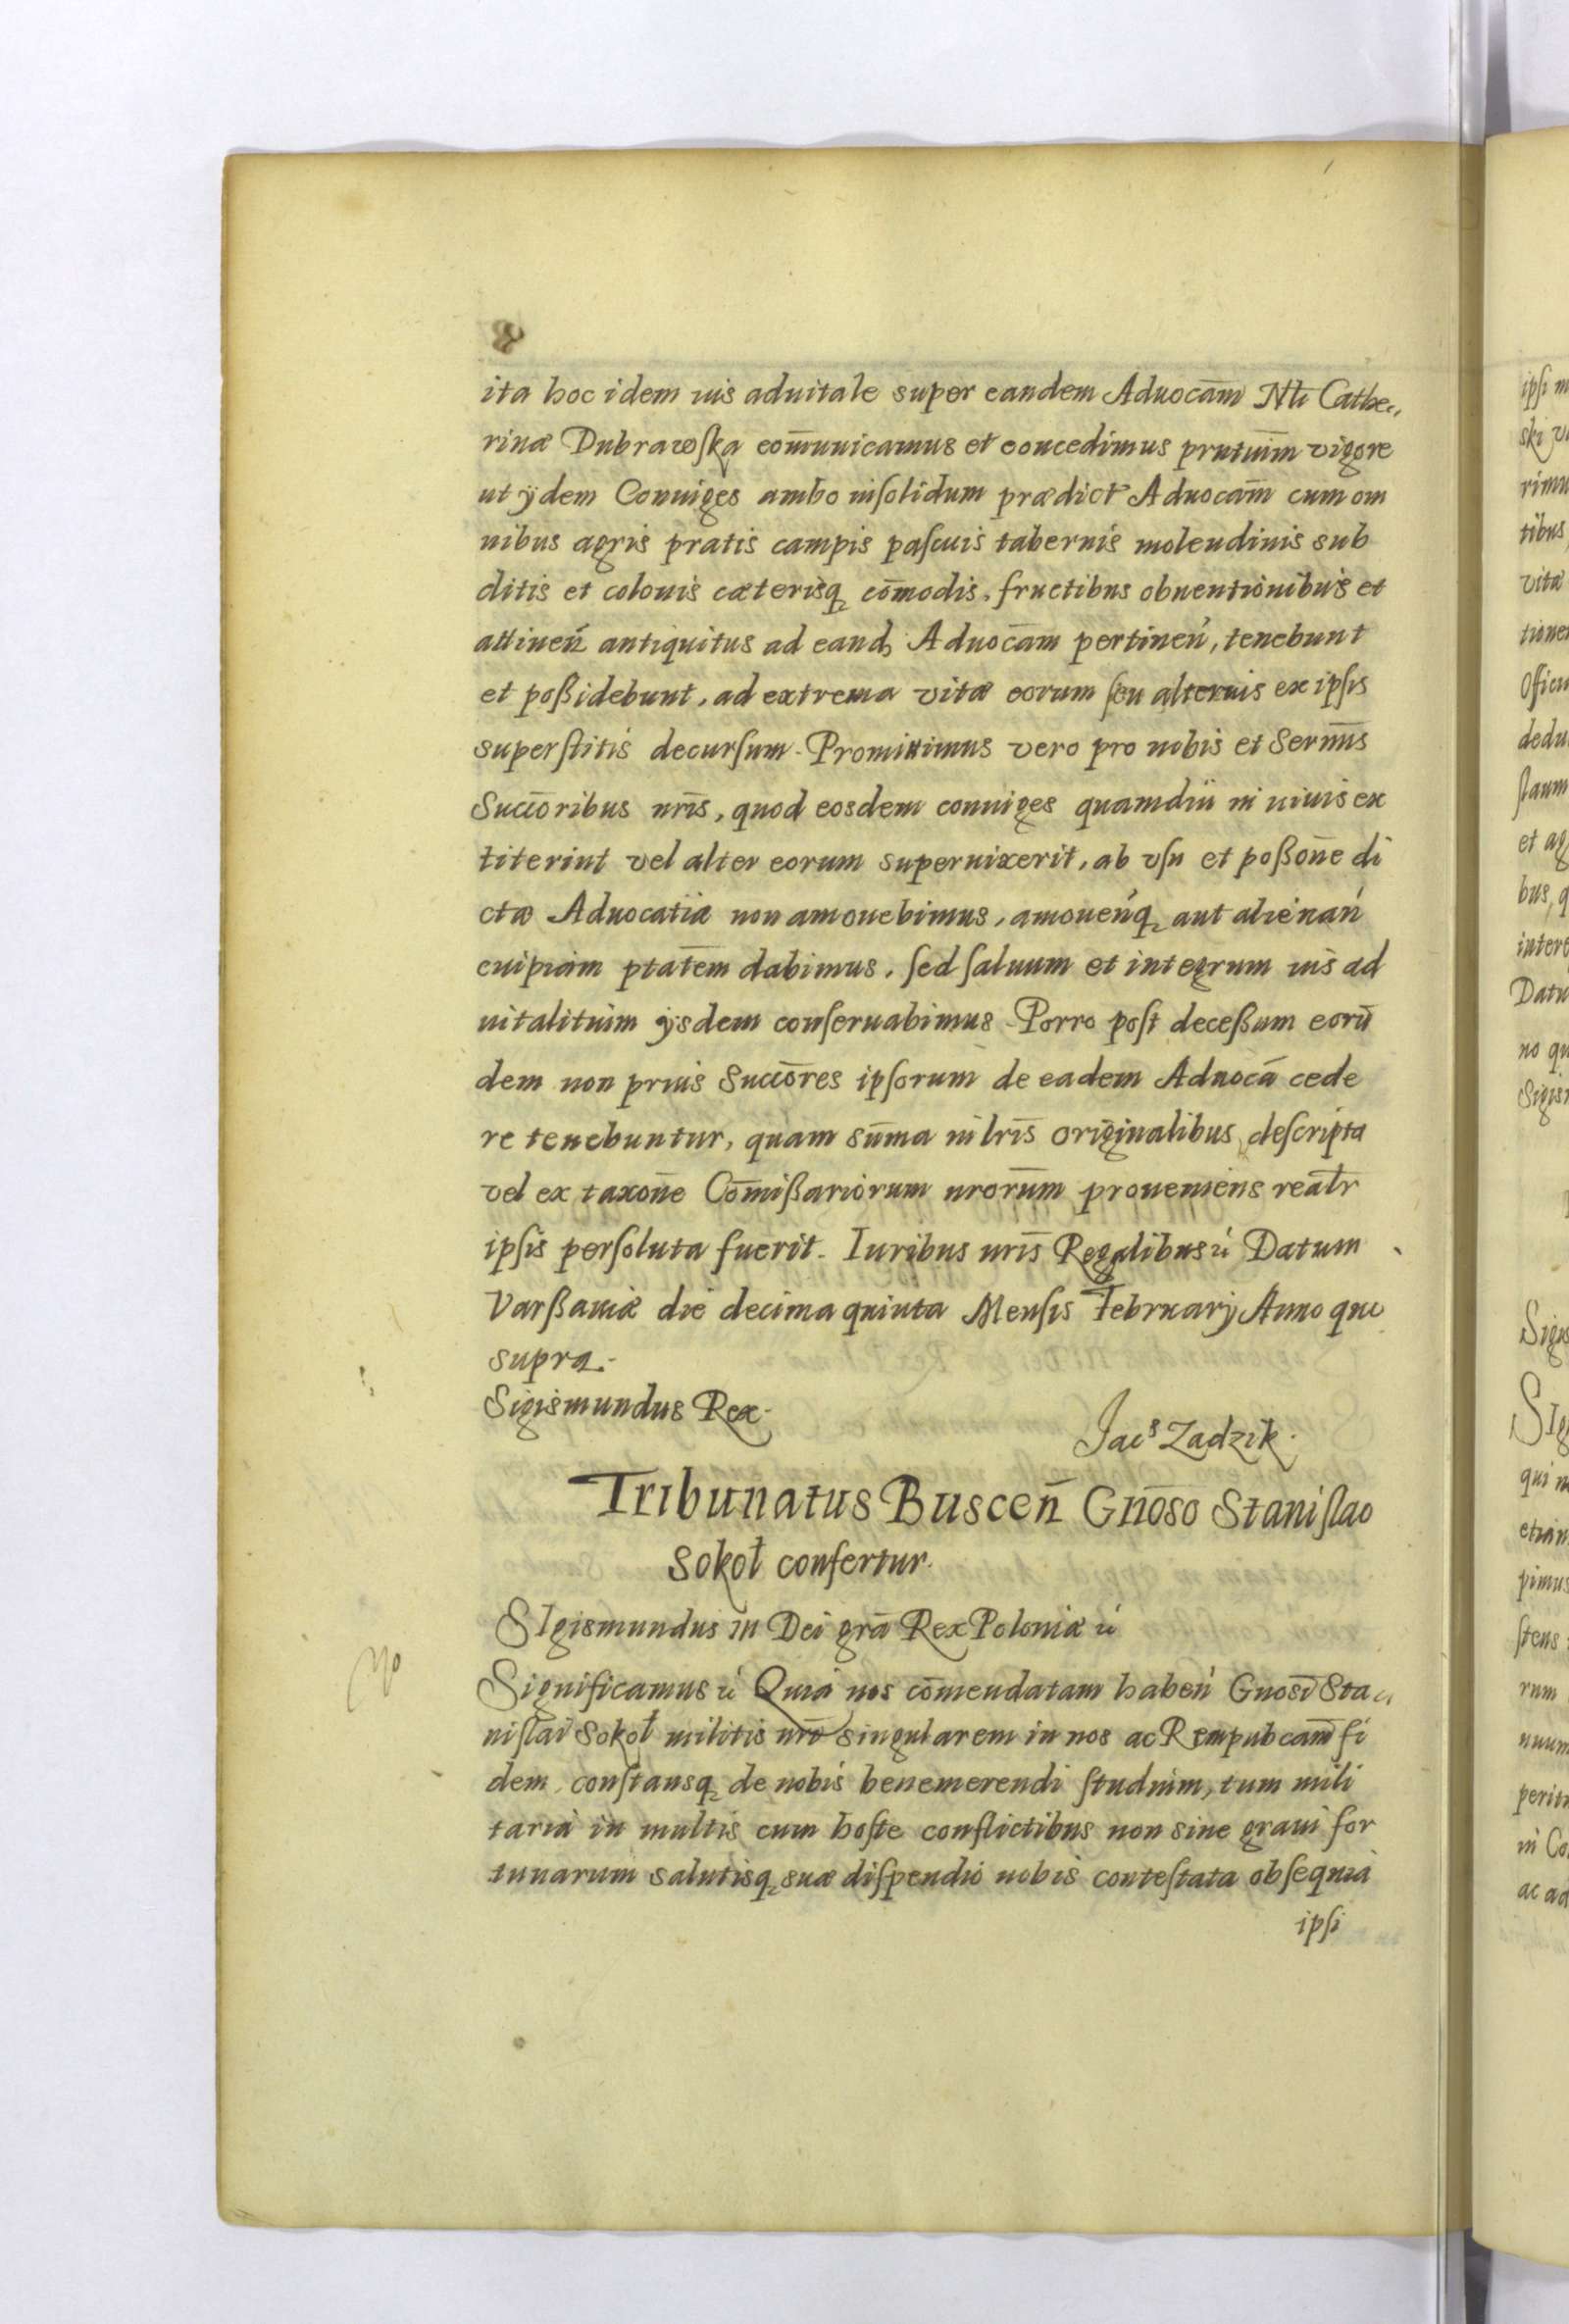 ita hoc idem ius aduitale super eandem Aduocam̄ Nli Cathe„
rinæ Dubrawska com̄unicamus et concedimus pñtuim̄ vigore
ut ÿdem Coniuges ambo insolidum prædict Aduocam̄ cum om
nibus agris pratis campis pascuis tabernis molendinis sub
ditis et colonis cæterisq̨ com̄odis, fructibus obuentionibus et
attineñ antiquitus ad eand, Aduocam̄ pertineń, tenebunt
et poßidebunt, ad extrema vitæ eorum seu alteruis ex ipsis
superstitis decursum. Promittimus vero pro nobis et Serm̄s
Succoribus nr̄is, quod eosdem coniuges quamdiu in uiuis ex
titerint vel alter eorum superuixerit, ab vsu et poßon̄e di
ctæ Aduocatiæ non amouebimus, amoueńq̨ aut alienań
cuipiam ptatem̄ dabimus, sed saluum et integrum ius ad
uitalitium ÿsdem conseruabimus. Porro post deceßum eorū
dem non prius Succores ipsorum de eadem Aduocā cede
re tenebuntur, quam sum̄a in lr̄is originalibus descripta
vel ex taxon̄e Com̄ißariorum nrorum̄ proueniens realr̄
ipsis persoluta fuerit. Iuribus nr̄is Regalibus ć Datum
Varßauiæ die decima quinta Mensis Februarÿ Anno quo
supra.
Sigismundus Rex.
Jacs Zadzik.
Tribunatus Buscen̄ Gnoso Stanislao
Sokoł confertur.
SIgismundus III Dei grā Rex Poloniæ ć
Significamus ć Quia nos com̄endatam habeń Gnosi Sta„
nislai Sokoł militis nrī singularem in nos ac Rempubcam̄ fi
dem, constansq̨ de nobis benemerendi studium, tum mili
taria in multis cum hoste conflictibus non sine graui for
tunarum salutisq̨ suæ dispendio nobis contestata obsequia
ipsi